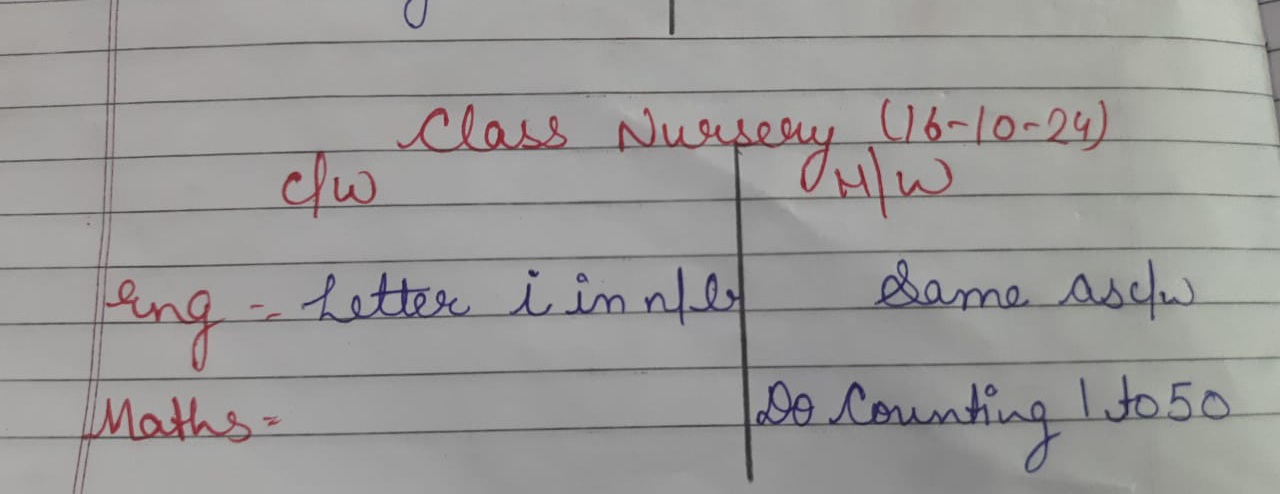 Class Nursery (16-10-24)
C/W H/W
Eng - Letter i in n/b Same as c/w
Maths - Do Counting 1 to 50